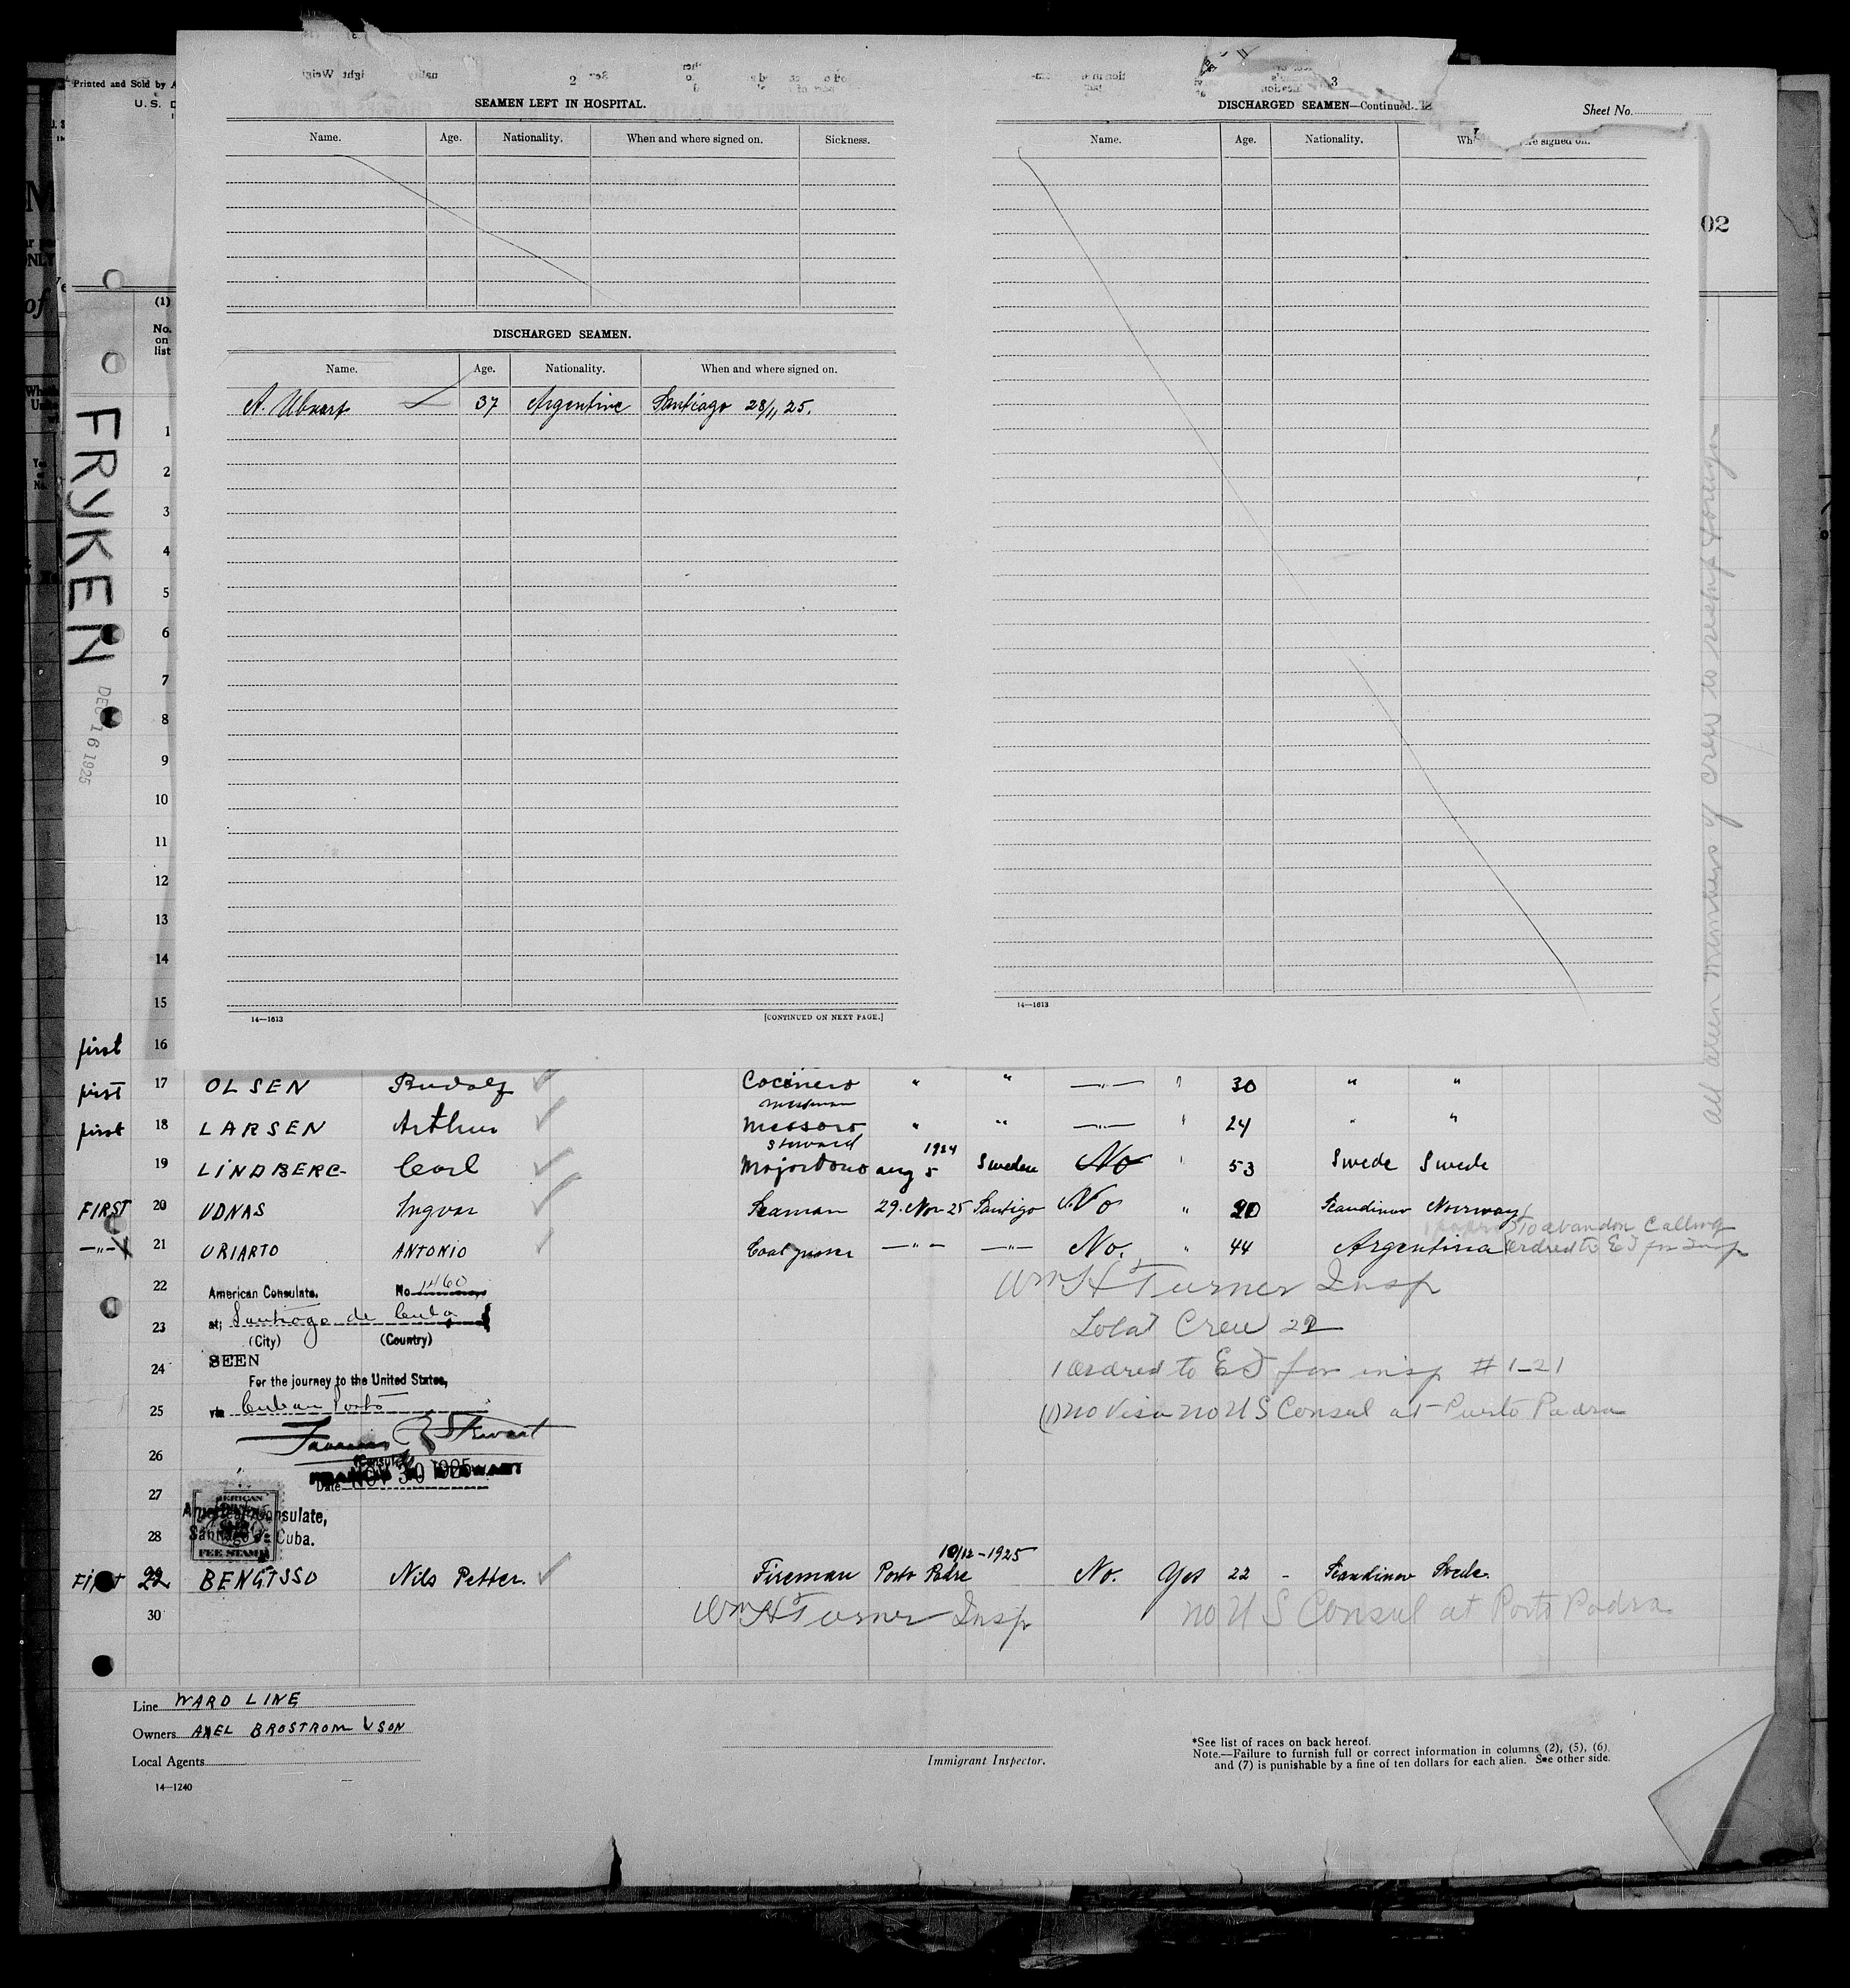 Printed and Sold by A
U. S. D
2
SEAMEN LEFT IN HOSPITAL.
Name. Age. Nationality. When and where signed on. Sickness.
DISCHARGED SEAMEN.
Name. Age. Nationality. When and where signed on.
37 Argentine Santiago 28/11 25.
14—1613 [CONTINUED ON NEXT PAGE.]
3
DISCHARGED SEAMEN—Continued.
Sheet No.
Name. Age. Nationality. re signed on.
14—1613
02
(1)
No. on list
FRYKEN
DEC 16 1925
1
2
3
4
5
6
7
8
9
10
11
12
13
14
15
first 16
first 17 OLSEN Rudolf Cocinero " " —"— " 30 " "
messman
first 18 LARSEN Arthur Messoro " " —"— " 24 " "
Steward 1924
19 LINDBERG Carl Majordono aug 5 Sweden No " 53 Swede Swede
FIRST 20 UDNAS Ingvar Seaman 29. Nov 25 Santigo No " 20 Scandinav Norway
to abandon calling
—"— 21 URIARTO ANTONIO Coal passer —"— —"— No. " 44 Argentina Ordred to EI for Insp
22 American Consulate. No 1460
Wm H Turner Insp
23 at; Santiago de Cuba
(City) (Country)
Total Crew 22
24 SEEN
For the journey to the United States,
1 Ordred to EI for insp # 1-21
25 via Cuban Ports
(1) no Visa no U S Consul at Puerto Padra
26 Francis R Stewart
Consul
Date NOV 30 1925
27
American Consulate,
28 Santiago de Cuba.
FEE STAMP
10/12-1925
First 22 BENGTSSO Nils Petter. Fireman Porto Padre No. Yes 22 - Scandinav Swede.
30 Wm H Turner Insp no U S Consul at Porto Padra
All alien members of crew to reship foreign
Line WARD LINE
Owners AXEL BROSTROM & SON
Local Agents
14—1240
Immigrant Inspector.
*See list of races on back hereof.
Note.—Failure to furnish full or correct information in columns (2), (5), (6)
and (7) is punishable by a fine of ten dollars for each alien. See other side.